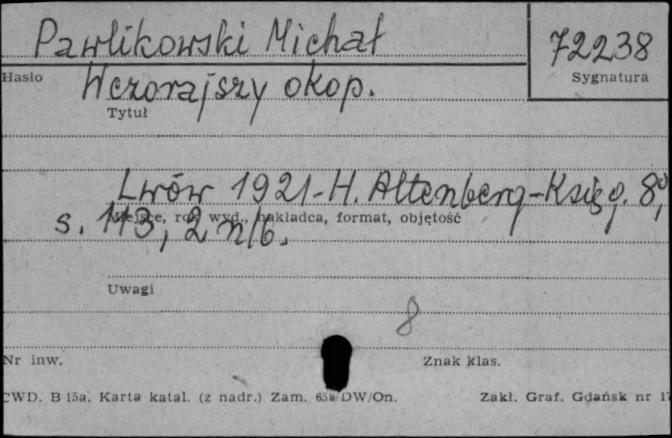 Pawlikowski Michał
72238
Hasło
Sygnatura
Wczorajszy okop.
Tytuł
Lwów 1921 - H. Altenberg - Księg. 8°,
Miejsce, rok wyd., nakładca, format, objętość
s. 113, 2 nlb.
Uwagi
8
Nr inw.
Znak klas.
CWD. B 15a. Karta katal. (z nadr.) Zam. 658/DW/On.
Zakł. Graf. Gdańsk nr 17